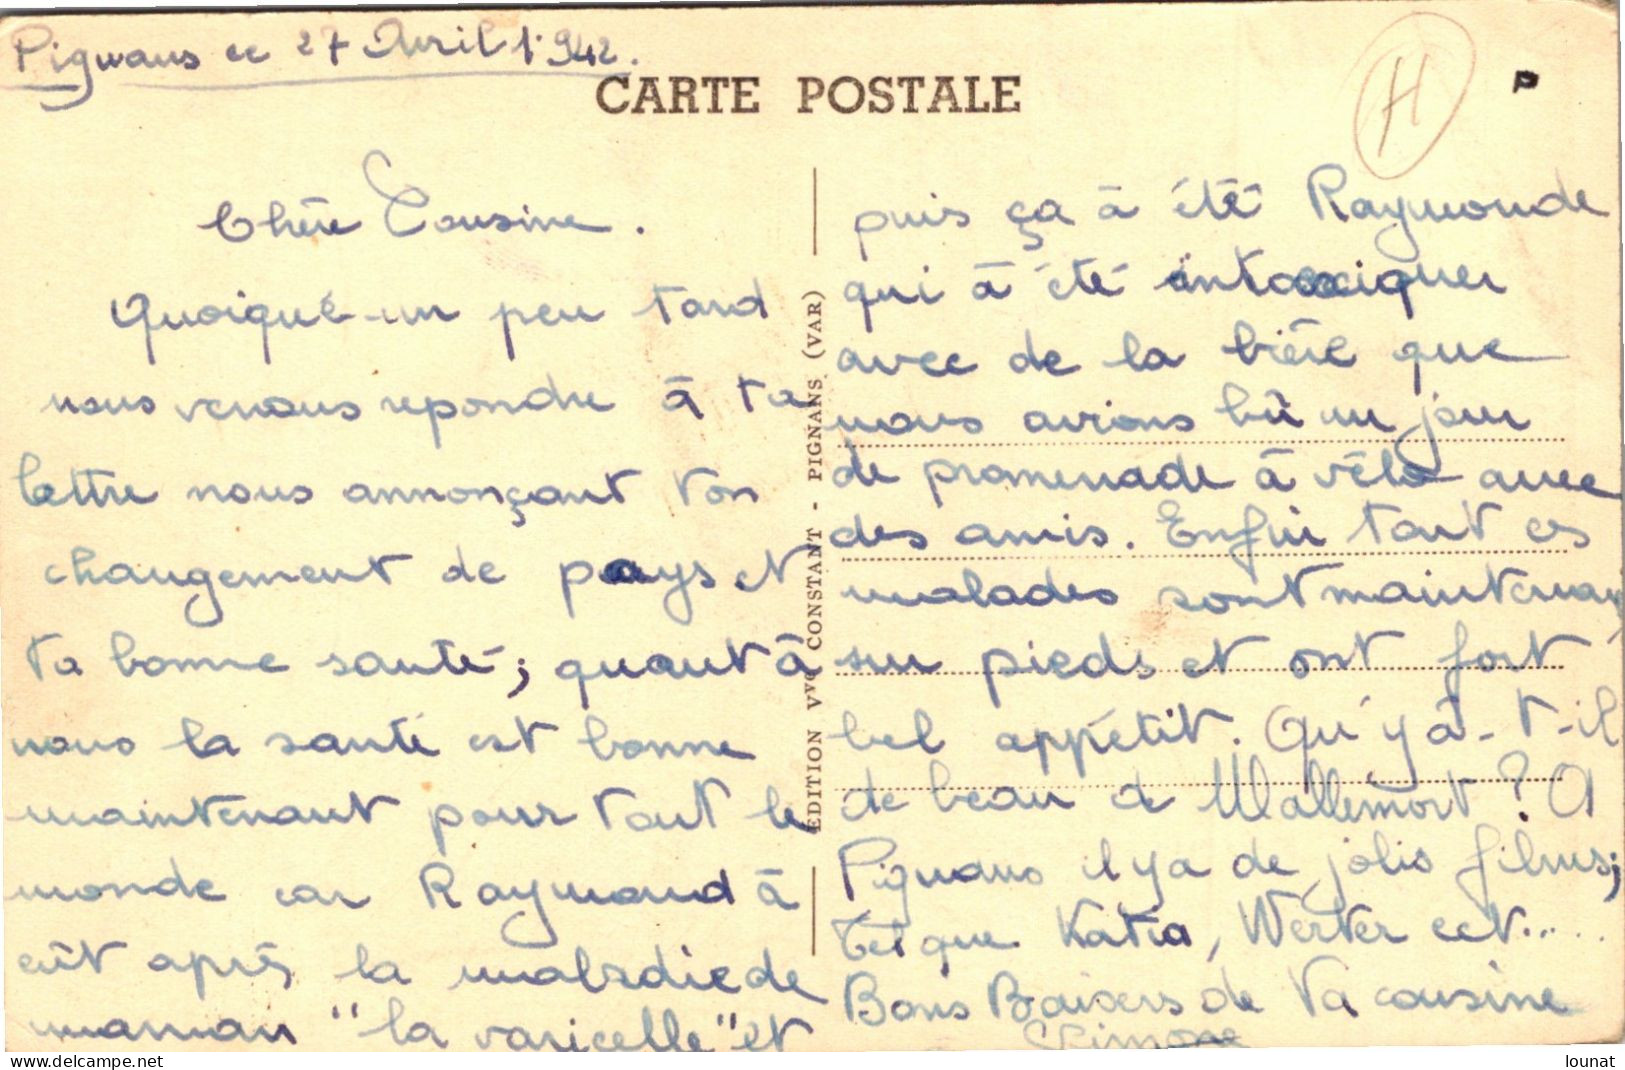 Pignans ce 27 Avril 1942.
CARTE POSTALE
H
P
Chère Cousine.
Quoique un peu tard
nous venons repondre à ta
lettre nous annonçant ton
changement de pays et
ta bonne santé; quant à
nous la santé est bonne
maintenant pour tout le
monde car Raymond à
eût après la maladie de
maman "la varicelle" et
EDITION Vve CONSTANT - PIGNANS (VAR)
puis ça à été Raymonde
qui à été intoxiquer
avec de la bière que
nous avions bû un jour
de promenade à vélo avec
des amis. Enfin tout ces
malades sont maintenant
sur pieds et ont fort
bel appétit. Qu'y à-t-il
de beau a Mallemort? A
Pignans il y a de jolis films;
Tel que Katia, Werter ect.....
Bons Baisers de ta cousine
Simone
delcampe.net
lounat